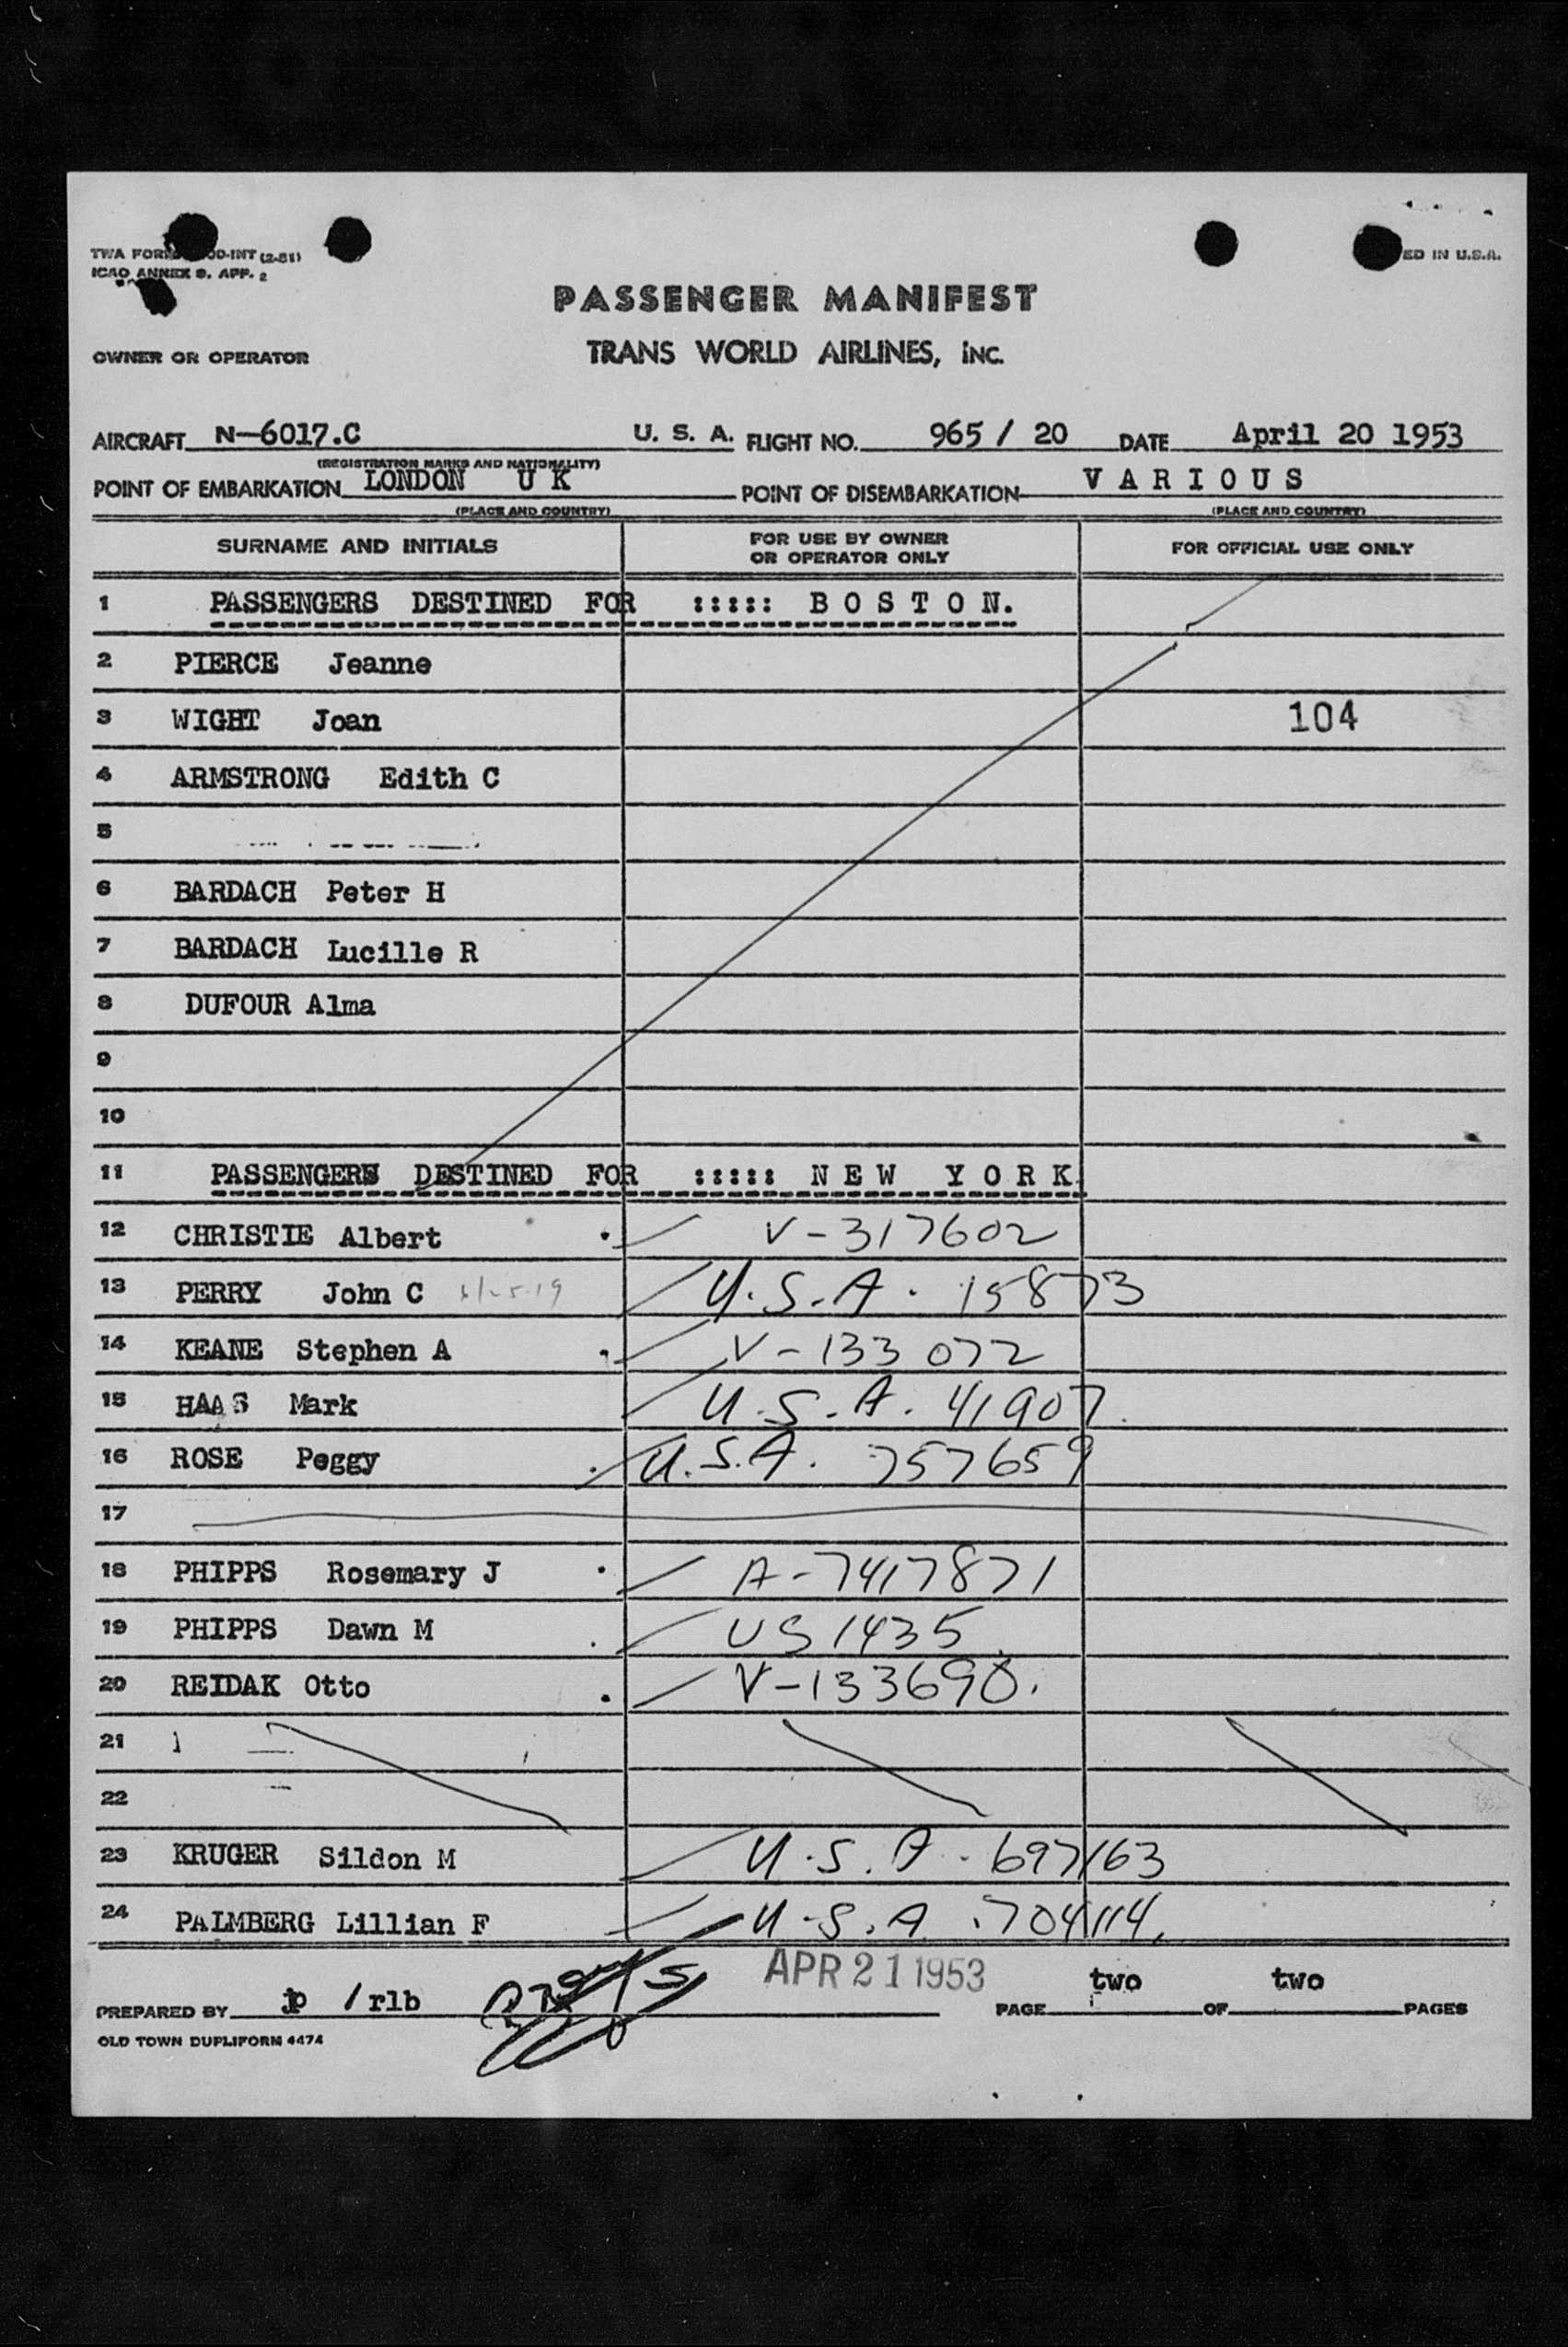 TWA FORM OD-INT (2-51)
ICAO ANNEX 9. APP. 2
ED IN U.S.A.
PASSENGER MANIFEST
OWNER OR OPERATOR TRANS WORLD AIRLINES, INC.
AIRCRAFT N-6017.C U. S. A. FLIGHT NO. 965 / 20 DATE April 20 1953
(REGISTRATION MARKS AND NATIONALITY)
POINT OF EMBARKATION LONDON U K POINT OF DISEMBARKATION V A R I O U S
(PLACE AND COUNTRY) (PLACE AND COUNTRY)
SURNAME AND INITIALS FOR USE BY OWNER OR OPERATOR ONLY FOR OFFICIAL USE ONLY
1 PASSENGERS DESTINED FOR ::::: B O S T O N.
2 PIERCE Jeanne
3 WIGHT Joan 104
4 ARMSTRONG Edith C
5
6 BARDACH Peter H
7 BARDACH Lucille R
8 DUFOUR Alma
9
10
11 PASSENGERS DESTINED FOR ::::: N E W Y O R K
12 CHRISTIE Albert V-317602
13 PERRY John C U.S.A. 15873
14 KEANE Stephen A V-133072
15 HAAS Mark U.S.A. 41907
16 ROSE Peggy U.S.A. 757659
17
18 PHIPPS Rosemary J A-7417871
19 PHIPPS Dawn M US 1435
20 REIDAK Otto V-133690.
21
22
23 KRUGER Sildon M U.S.A. 697163
24 PALMBERG Lillian F U.S.A. 704114
APR 21 1953
PREPARED BY jp / rlb PAGE two OF two PAGES
OLD TOWN DUPLIFORM 4474